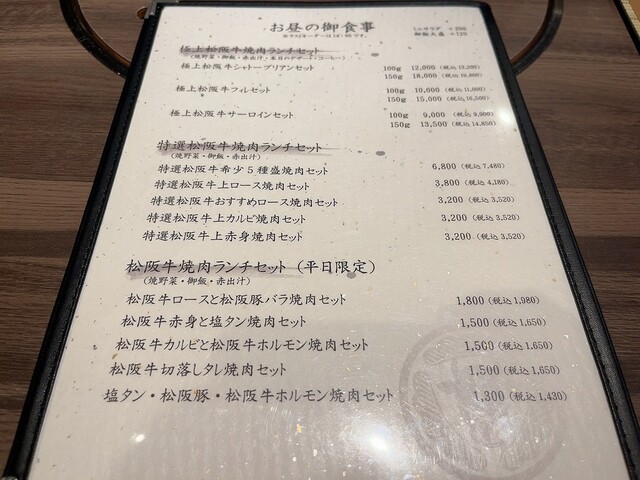 お昼の御食事
ミニサラダ +250
御飯大盛 +120
極上松阪牛焼肉ランチセット
(焼野菜・御飯・赤出汁・本日のデザート・コーヒー)
極上松阪牛シャトーブリアンセット 100g 12,000 (税込 13,200)
150g 18,000 (税込 19,800)
極上松阪牛フィレセット 100g 10,000 (税込 11,000)
150g 15,000 (税込 16,500)
極上松阪牛サーロインセット 100g 9,000 (税込 9,900)
150g 13,500 (税込 14,850)
特選松阪牛焼肉ランチセット
(焼野菜・御飯・赤出汁)
特選松阪牛希少5種盛焼肉セット 6,800 (税込 7,480)
特選松阪牛上ロース焼肉セット 3,800 (税込 4,180)
特選松阪牛おすすめロース焼肉セット 3,200 (税込 3,520)
特選松阪牛上カルビ焼肉セット 3,200 (税込 3,520)
特選松阪牛上赤身焼肉セット 3,200 (税込 3,520)
松阪牛焼肉ランチセット (平日限定)
(焼野菜・御飯・赤出汁)
松阪牛ロースと松阪豚バラ焼肉セット 1,800 (税込 1,980)
松阪牛赤身と塩タン焼肉セット 1,500 (税込 1,650)
松阪牛カルビと松阪牛ホルモン焼肉セット 1,500 (税込 1,650)
松阪牛切落しタレ焼肉セット 1,500 (税込 1,650)
塩タン・松阪豚・松阪牛ホルモン焼肉セット 1,300 (税込 1,430)